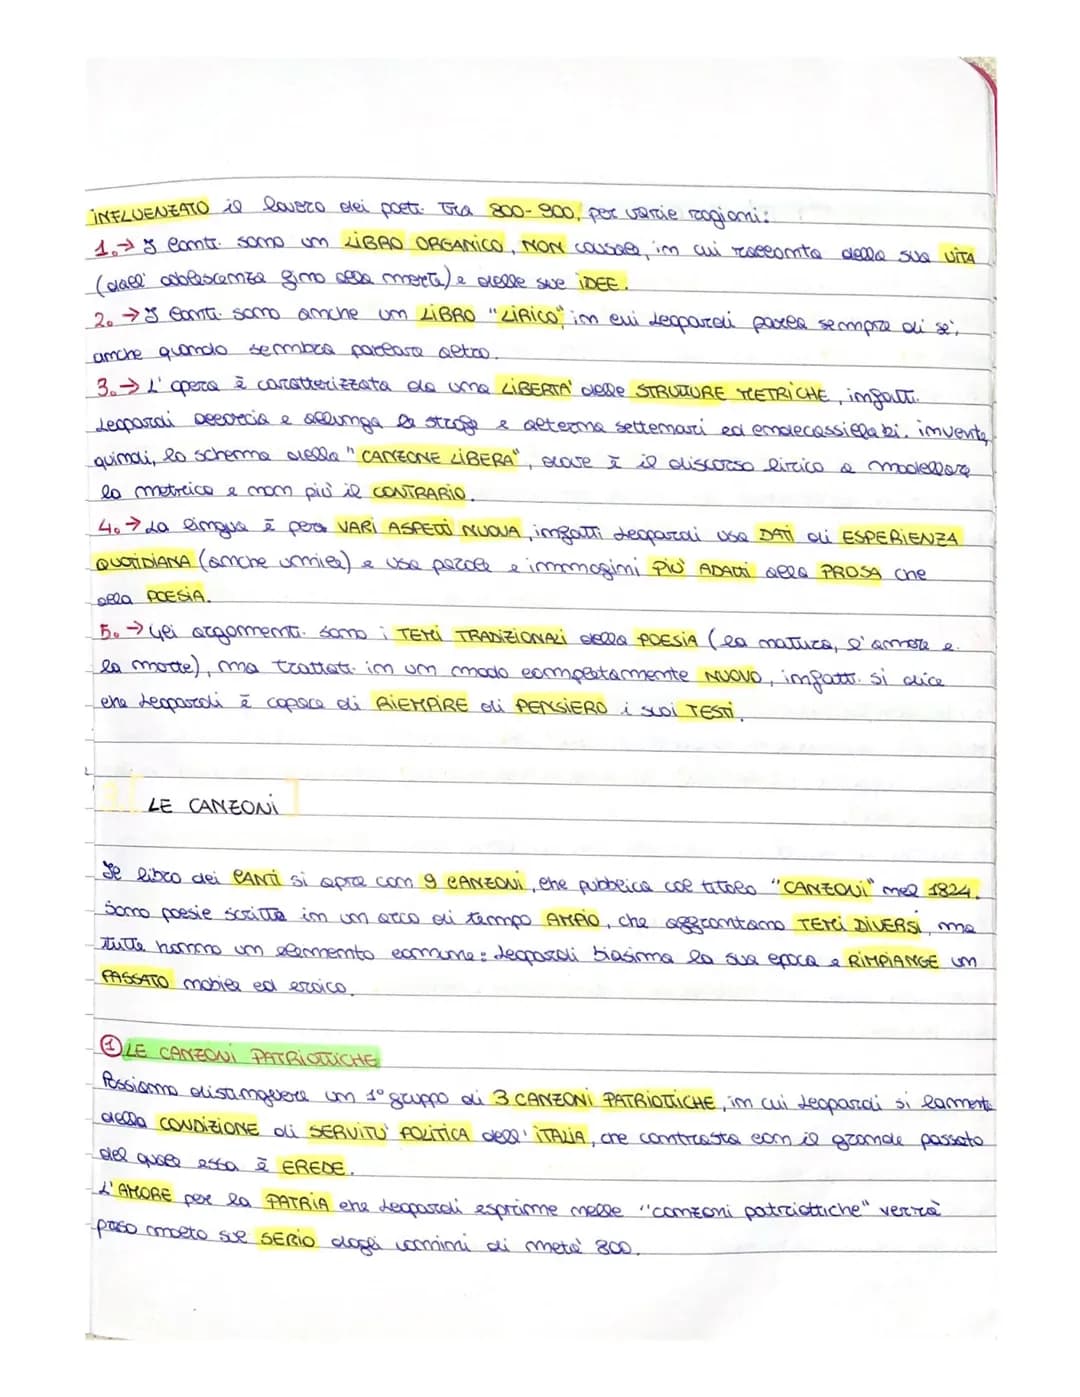 INFLUENZATO il lavoro dei poeti tra 800-900, per varie ragioni:
1.→ I canti sono un LIBRO ORGANICO, NON causale, in cui racconta della sua VITA
(dall'adolescenza fino alla morte) e delle sue IDEE.
2. → I Canti sono anche un LIBRO "LIRICO", in cui Leopardi parla sempre di sé,
anche quando sembra parlare altro.
3.→ L'opera è caratterizzata da una LIBERTA' delle STRUTTURE METRICHE, infatti
Leopardi accorcia e allunga la strofe e alterna settenari ed endecasillabi. inventa,
quindi, lo schema della "CANZONE LIBERA", dove è il discorso lirico a modellare
la metrica e non più il CONTRARIO.
4.→ La lingua è per VARI ASPETTI NUOVA, infatti Leopardi usa DATI di ESPERIENZA
QUOTIDIANA (anche umile) e usa parole e immagini PIU' ADATTI alla PROSA che
alla POESIA.
5. → Gli argomenti sono i TEMI TRADIZIONALI della POESIA (la natura, l'amore e
la morte), ma trattati in un modo completamente NUOVO, infatti si dice
che Leopardi è capace di RIEMPIRE di PENSIERO i suoi TESTI.
LE CANZONI
Il libro dei CANTI si apre con 9 CANZONI, che pubblica col titolo "CANZONI" nel 1824.
Sono poesie scritte in un arco di tempo AMPIO, che affrontano TEMI DIVERSI, ma
tutte hanno un elemento comune: Leopardi biasima la sua epoca e RIMPIANGE un
PASSATO nobile ed eroico.
① LE CANZONI PATRIOTTICHE
Possiamo distinguere un 1° gruppo di 3 CANZONI PATRIOTTICHE, in cui Leopardi si lamenta
della CONDIZIONE di SERVITU' POLITICA dell'ITALIA, che contrasta con il grande passato
del quale essa è EREDE.
L'AMORE per la PATRIA che Leopardi esprime nelle "canzoni patriottiche" verrà
preso molto sul SERIO dagli uomini di metà 800.